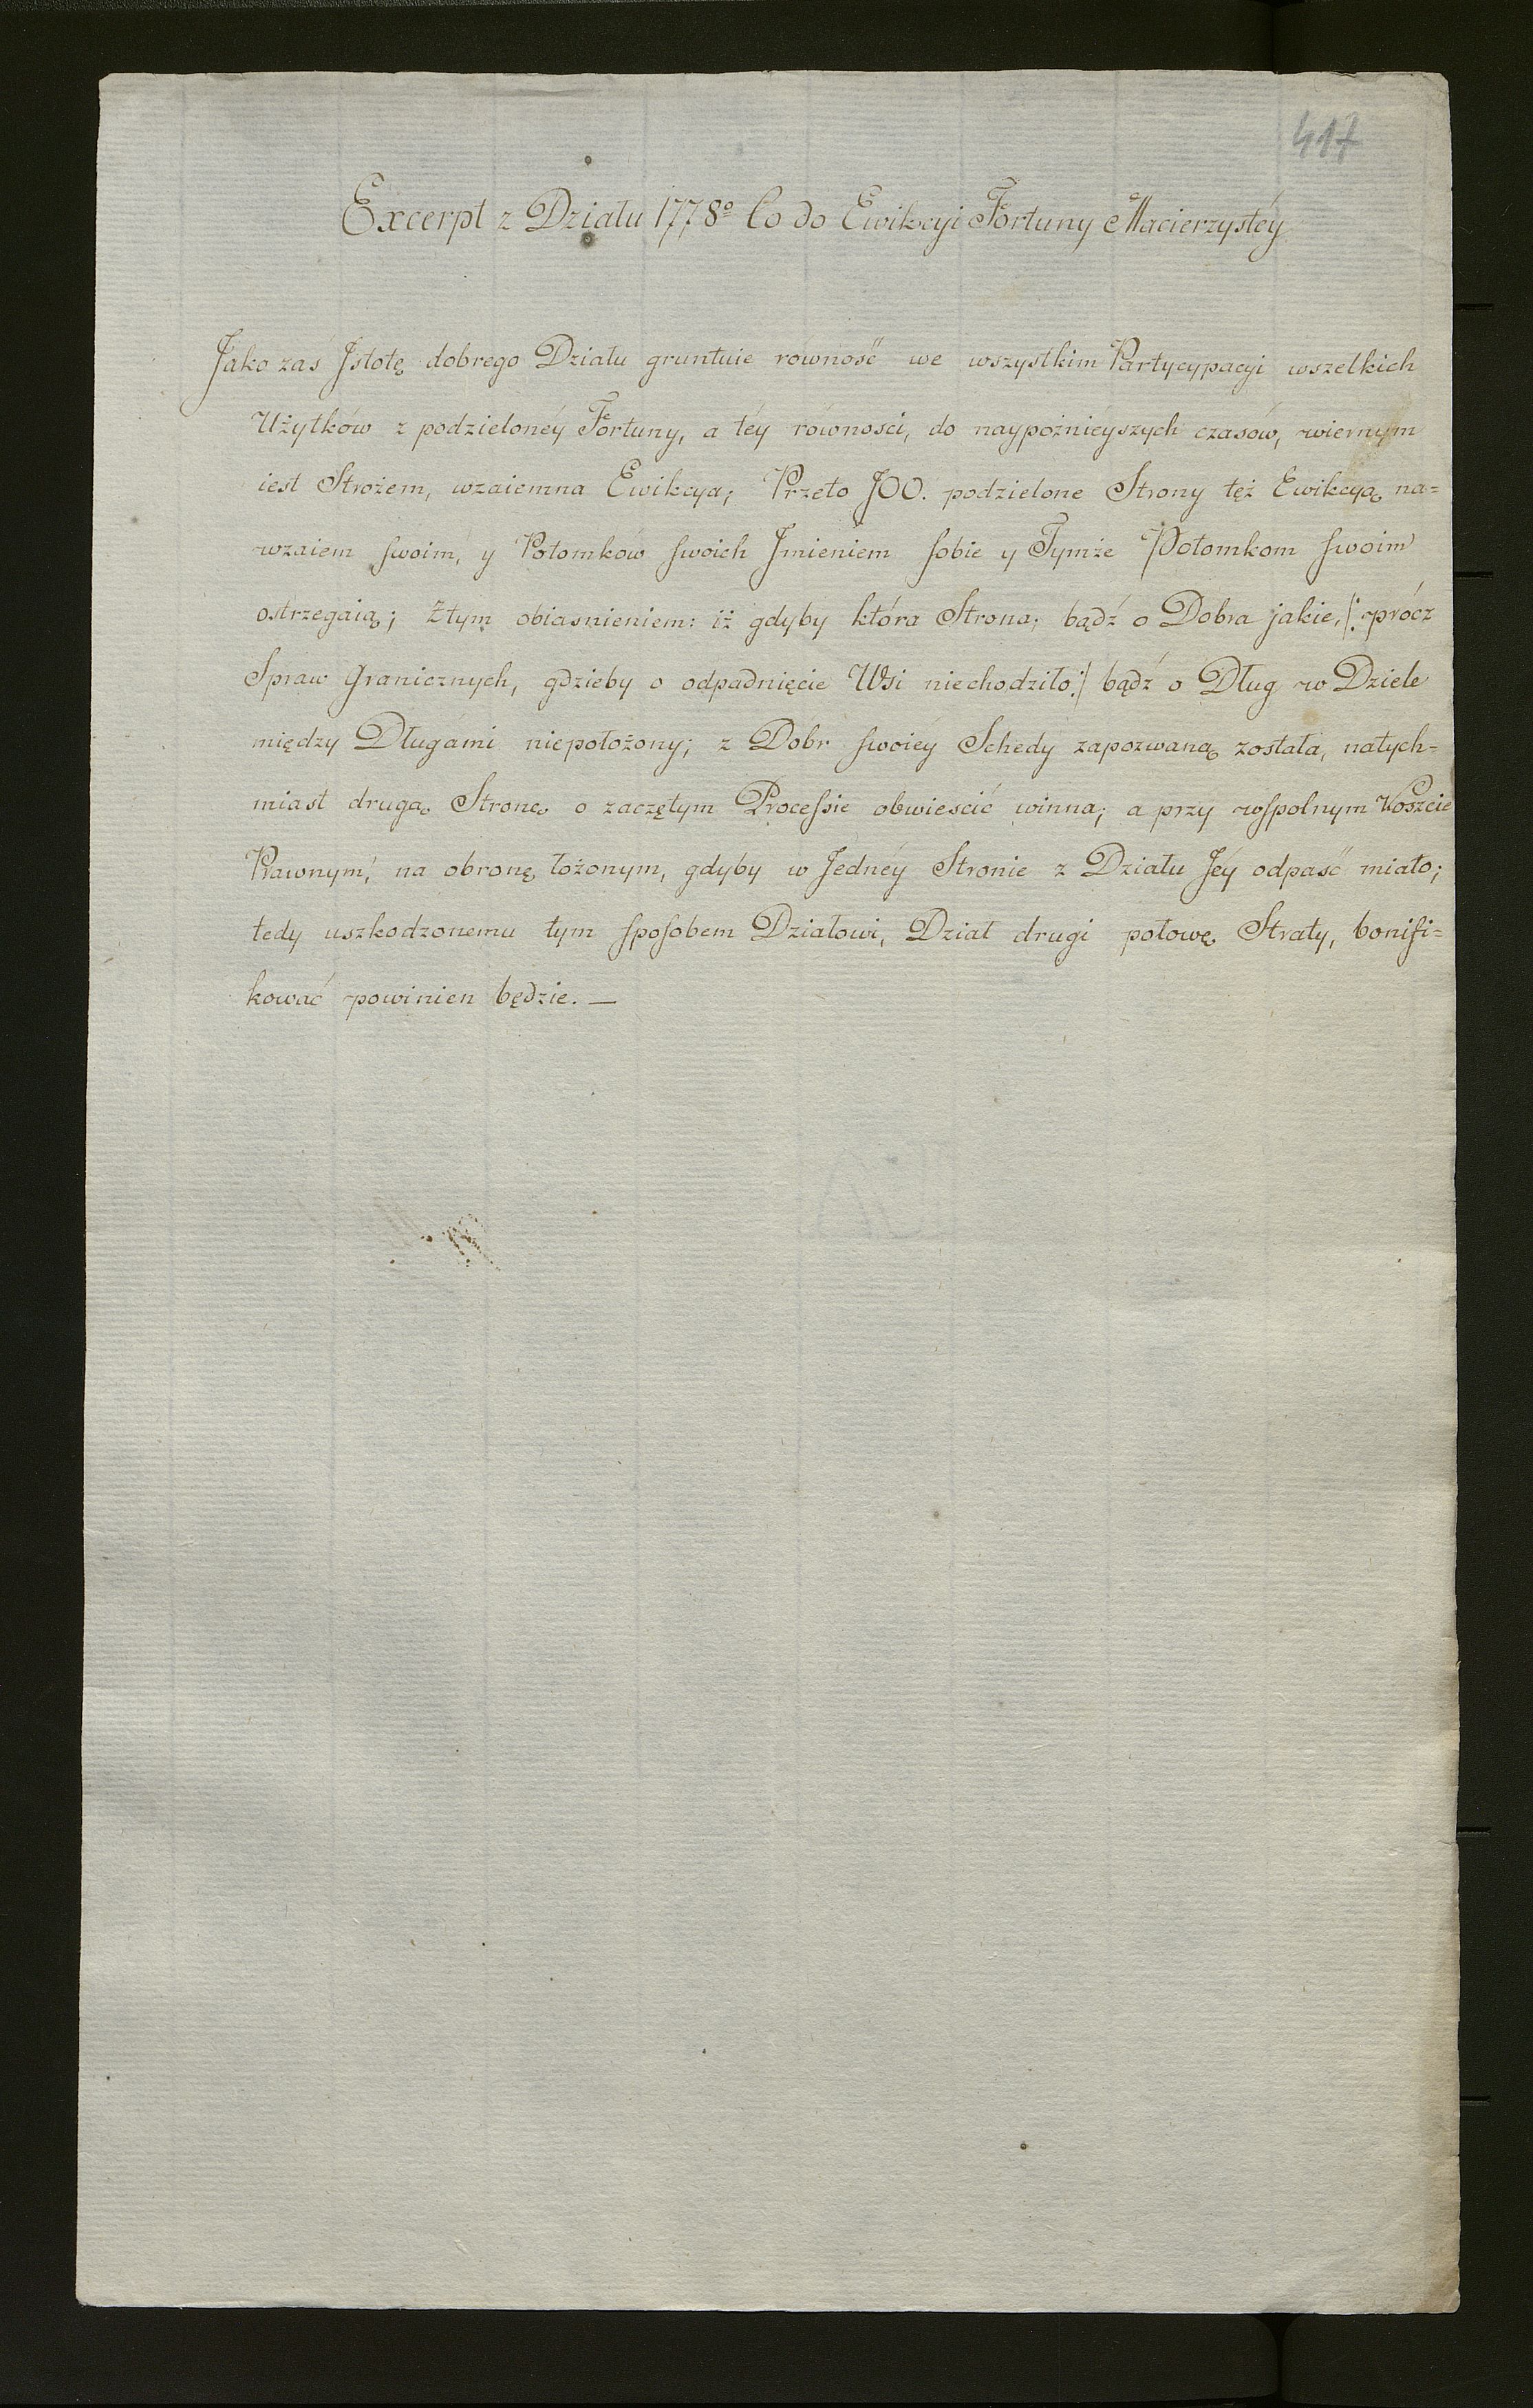 417
Excerpt z Działu 1778º Co do Ewikcyi Fortuny Macierzystéy
Jako zaś Jstotę dobrego Działu gruntuie rowność we wszystkim Partycypacyi wszelkich
Użytków z podzielonéy Fortuny, a téy równosci, do naypoźnieyszych czasów, wiernym
iest Strożem, wzaiemna Ewikcya; Przeto JOO. podzielone Strony też Ewikcyą na=
wzaiem swoim, y Potomków swoich Jmieniem sobie y Tymże Potomkom swoim
ostrzegaią; Ztym obiasnieniem: iż gdyby która Strona, bądź o Dobra jakie, /: prócz
Spraw Granicznych, gdzieby o odpadnięcie Wsi niechodziło :/ bądź o Dług w Dziele
między Długámi niepołożony; z Dobr swoiéy Schedy zapozwaną została, natych=
miast drugą Stronę o zaczętym Processie obwieścić winna; a przy wspolnym Koszcie
Prawnym, na obronę łożonym, gdyby w Jednéy Stronie z Działu Jéy odpaść miało;
tedy uszkodzonemu tym sposobem Działowi, Dział drugi połowę Straty, bonifi=
kować powinien będzie. —